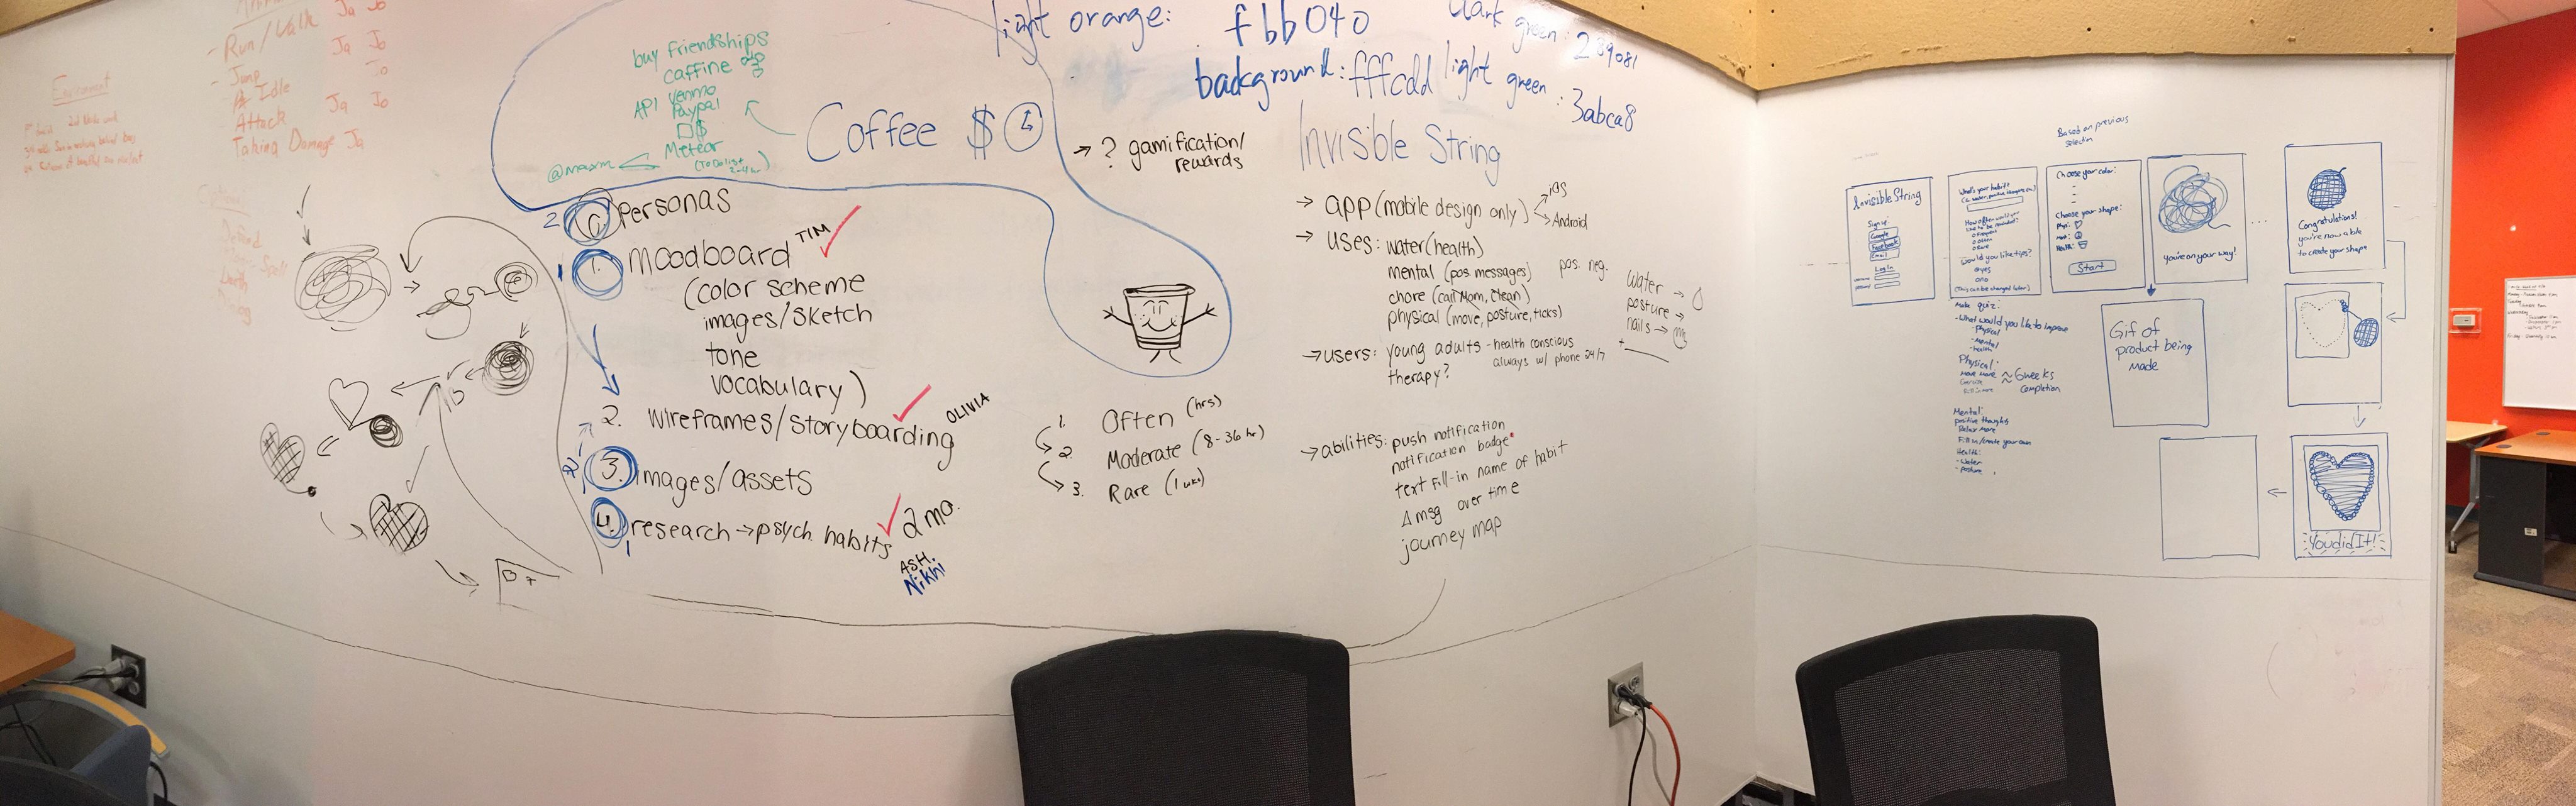 Run / Walk
Ja Jo
Jump
Idle
Attack Ja Jo
Taking Damage Ja
Environment
buy friendships
caffine
API venmo
Paypal
$
Meteor
@maxim
Coffee $
light orange: fbb040
dark green: 289081
background: fffcdd
light green: 3abca8
→ ? gamification/
rewards
2 Personas
1 1. Moodboard TIM
(color scheme
images/sketch
tone
vocabulary)
2. wireframes/storyboarding OLIVIA
3. Images/assets
4. research → psych. habits 2 mo.
ASH.
Nikhi
B+
1. Often (hrs)
2. Moderate (8-36 hr)
3. Rare (1 wk)
Invisible String
→ app (mobile design only) iOS
Android
→ uses: water (health)
mental (pos. messages) pos. neg.
chore (call Mom, clean)
physical (move, posture, ticks)
water →
posture →
nails →
→ users: young adults - health conscious
always w/ phone 24/7
therapy?
→ abilities: push notification
notification badge
text fill-in name of habit
Δ msg over time
journey map
Based on previous
selection
Invisible String
Sign up:
Google
Facebook
Email
Log In
What's your habit?
How often would you
like to be reminded?
Often
Rare
Would you like tips?
yes
no
(This can be changed later)
Choose your color:
Choose your shape:
Start
you're on your way!
Congratulations!
you're now able
to create your shape
Make quiz:
- What would you like to improve
- Physical
- Mental
- Health
Physical:
Move more
≈ 6 weeks
completion
Mental:
positive thoughts
Relax more
Fill in/create your own
Health:
- water
- posture
Gif of
product being
made
You did It!